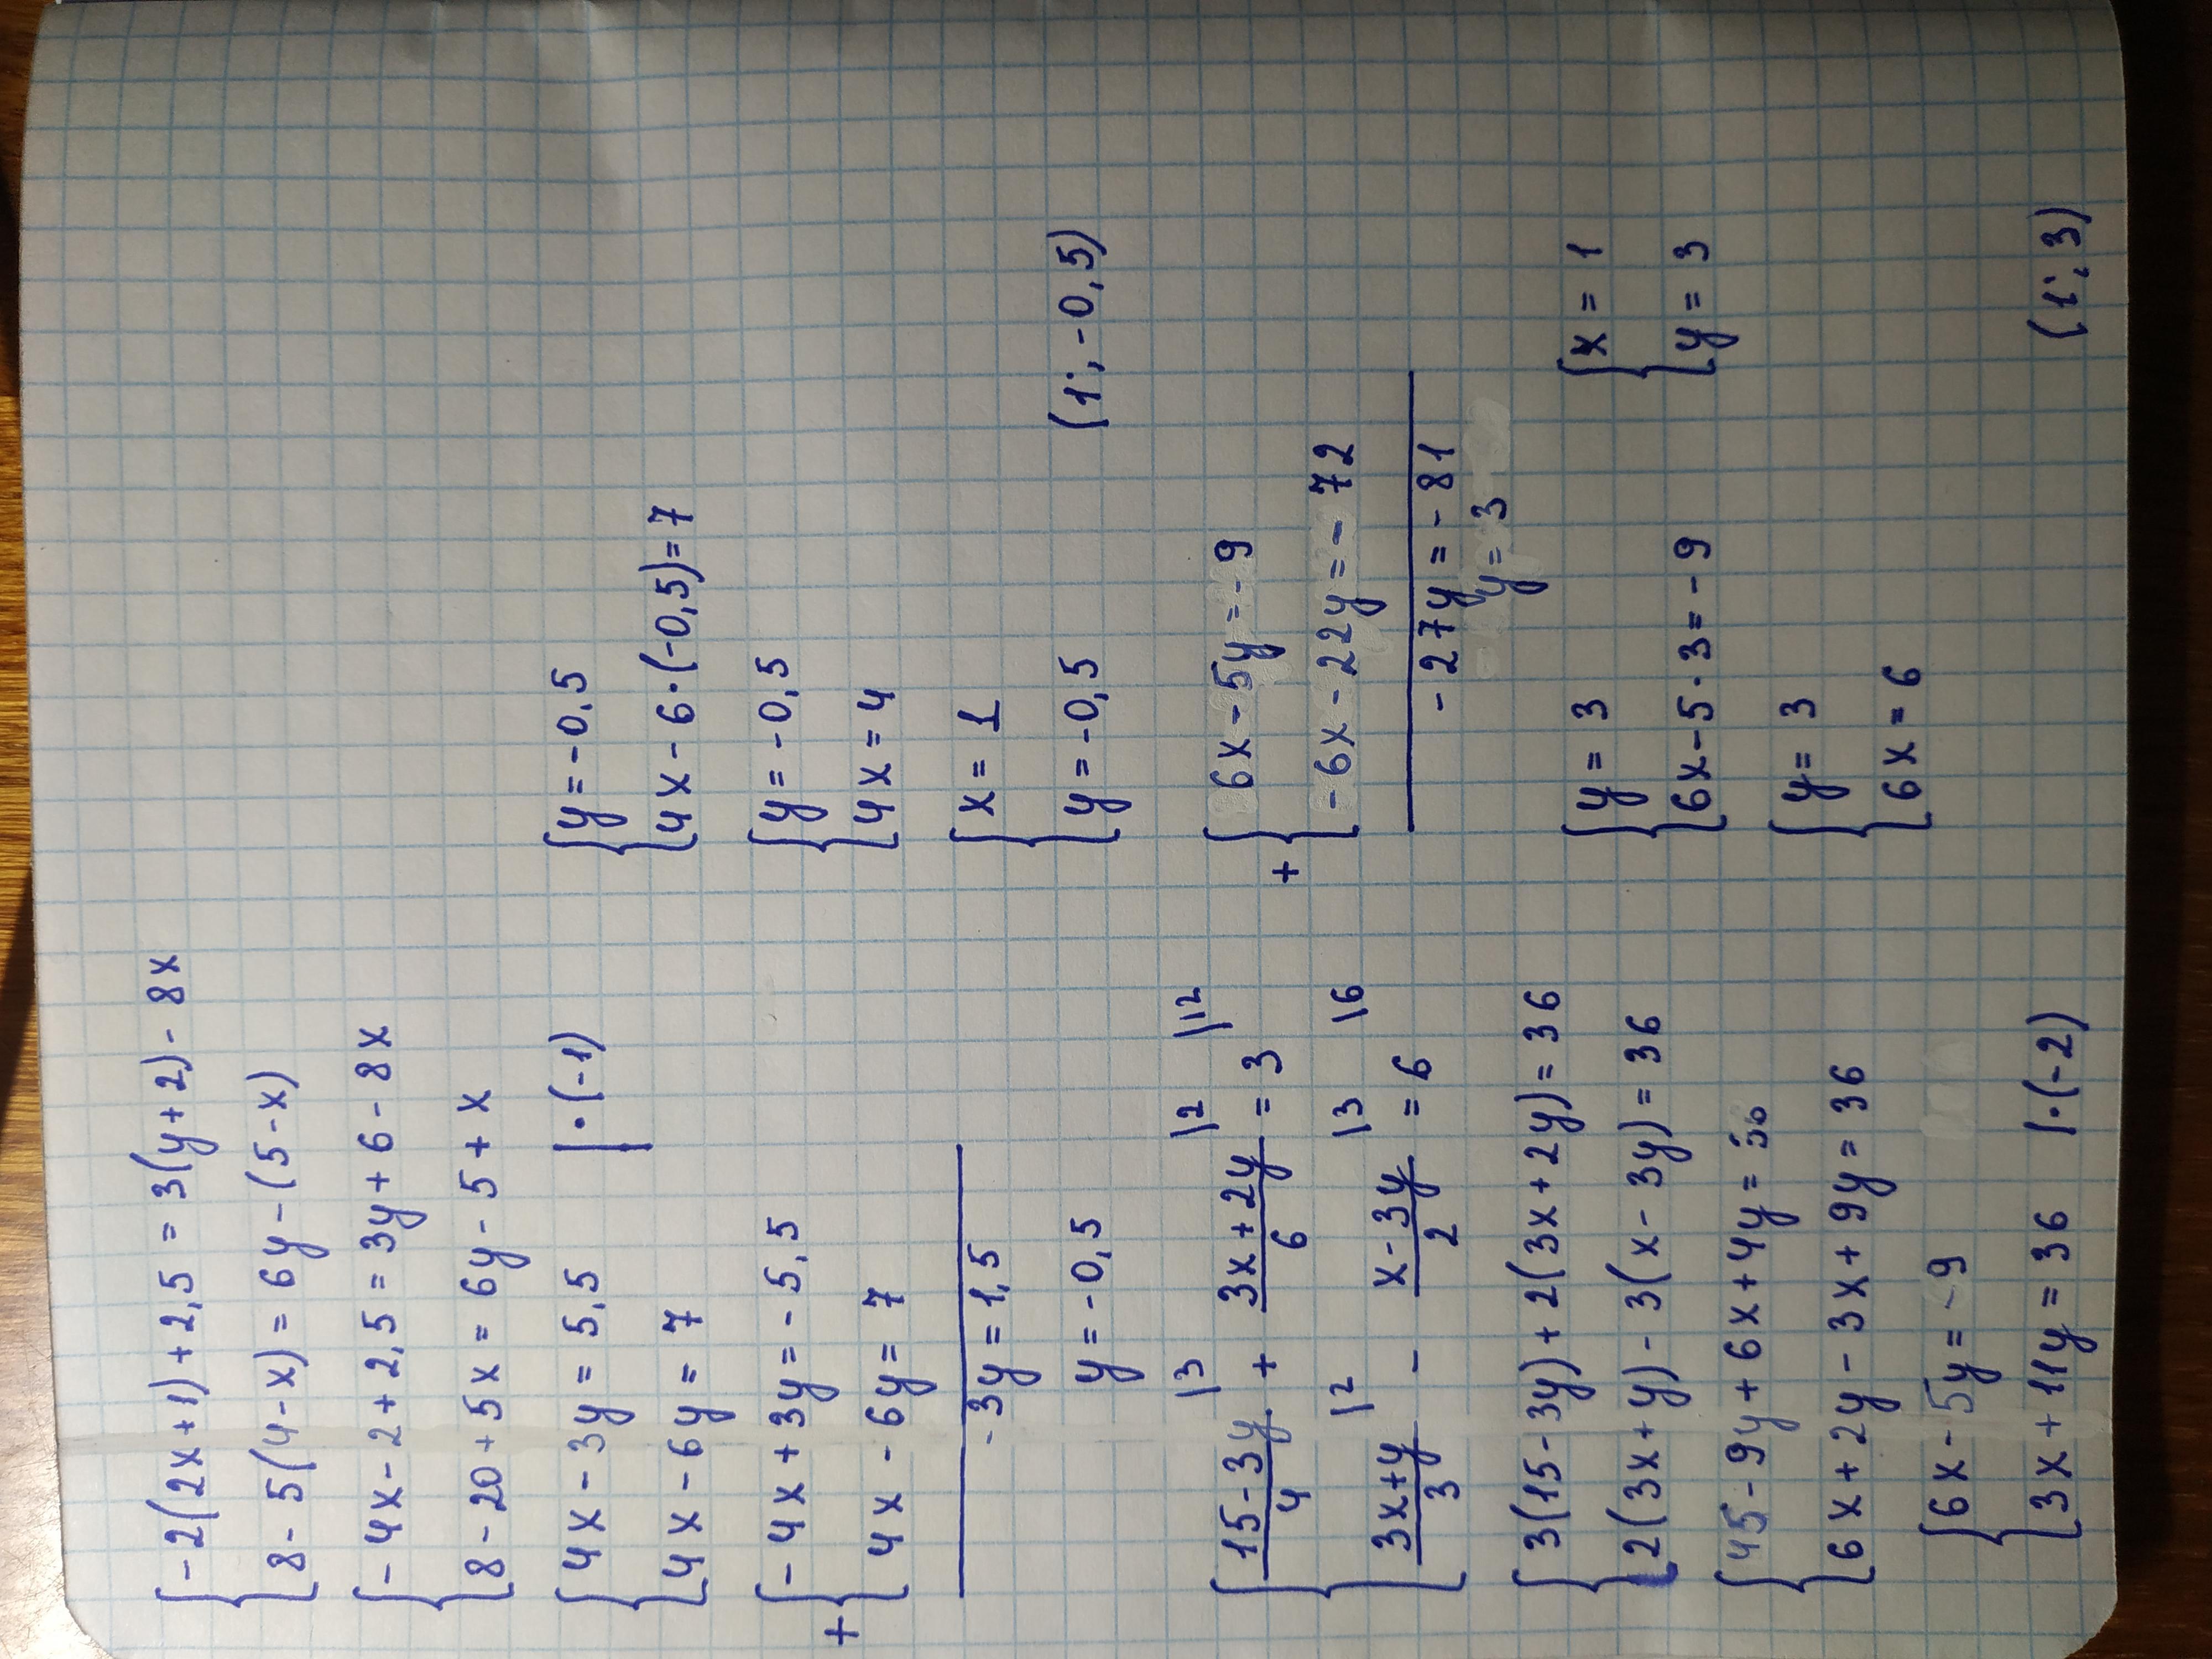 { -2(2x+1)+2,5 = 3(y+2)-8x
8-5(4-x) = 6y-(5-x)
{ -4x-2+2,5 = 3y+6-8x
8-20+5x = 6y-5+x
{ 4x-3y = 5,5 |·(-1)
4x-6y = 7
+ { -4x+3y = -5,5
4x-6y = 7
-3y = 1,5
y = -0,5
{ y = -0,5
4x-6·(-0,5)=7
{ y = -0,5
4x = 4
{ x = 1
y = -0,5 (1; -0,5)
{ 15-3y/4 |3 + 3x+2y/6 |2 = 3 |12
3x+y/3 |2 - x-3y/2 |3 = 6 |6
{ 3(15-3y)+2(3x+2y) = 36
2(3x+y)-3(x-3y) = 36
{ 45-9y+6x+4y = 36
6x+2y-3x+9y = 36
{ 6x-5y = -9
3x+11y = 36 |·(-2)
+ { 6x-5y = -9
-6x-22y = -72
-27y = -81
y = 3
{ y = 3
6x-5·3 = -9
{ y = 3
6x = 6
{ x = 1
y = 3
(1; 3)